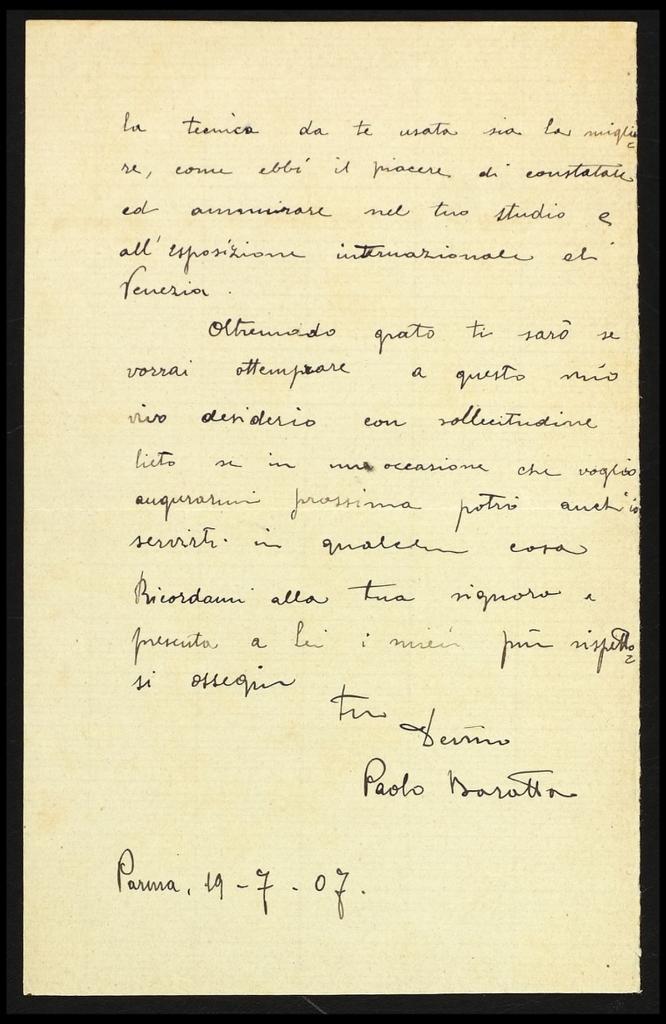 la tecnica da te usata sia la miglio=
re, come ebbi il piacere di constatare
ed ammirare nel tuo studio e
all'esposizione internazionale di
Venezia.
Oltremodo grato ti sarò se
vorrai ottemprare a questo mio
vivo desiderio con sollecitudine
lieto se in una occasione che voglio
augurarmi prossima potrò anch'io
servirti in qualche cosa
Ricordami alla tua signora e
presenta a lei i miei più rispetto=
si ossequi
tuo
Paolo Baratta
Parma, 19-7-07.